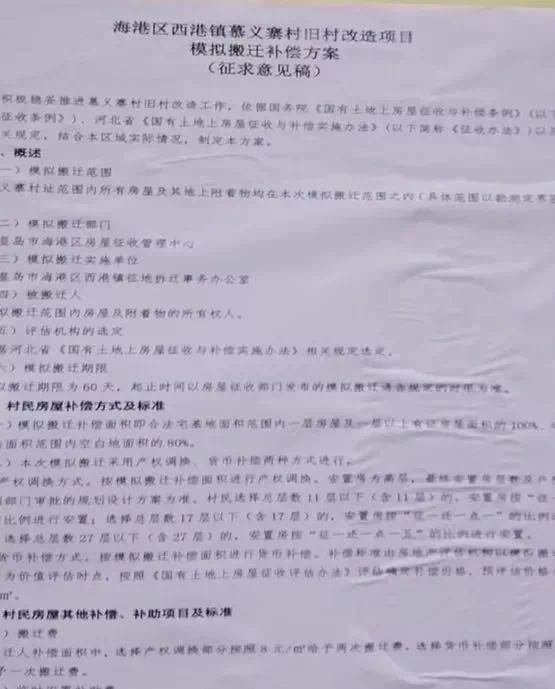 海港区西港镇慕义寨村旧村改造项目
模拟搬迁补偿方案
（征求意见稿）
积极稳妥推进慕义寨村旧村改造工作，依据国务院《国有土地上房屋征收与补偿条例》（以下
征收条例》）、河北省《国有土地上房屋征收与补偿实施办法》（以下简称《征收办法》）以及
关规定，结合本区域实际情况，制定本方案。
、概述
一）模拟搬迁范围
义寨村址范围内所有房屋及其地上附着物均在本次模拟搬迁范围之内（具体范围以勘测定界图
二）模拟搬迁部门
皇岛市海港区房屋征收管理中心
三）模拟搬迁实施单位
皇岛市海港区西港镇征地拆迁事务办公室
四）被搬迁人
拟搬迁范围内房屋及附着物的所有权人。
五）评估机构的选定
据河北省《国有土地上房屋征收与补偿实施办法》相关规定选定。
六）模拟搬迁期限
拟搬迁期限为60天，起止时间以房屋征收部门发布的模拟搬迁通告规定的时限为准。
村民房屋补偿方式及标准
一）模拟搬迁补偿面积即合法宅基地面积范围内一层房屋及一层以上有证房屋面积的100%、
面积范围内空白地面积的80%。
）本次模拟搬迁采用产权调换、货币补偿两种方式进行。
产权调换方式。按模拟搬迁补偿面积进行产权调换。安置房为高层，最终安置房层数及户
部门审批的规划设计方案为准。村民选择总层数11层以下（含11层）的，安置房按“征
比例进行安置；选择总层数17层以下（含17层）的，安置房按“征一还一点一”的比例
选择总层数27层以下（含27层）的，安置房按“征一还一点一五”的比例进行安置。
货币补偿方式。按模拟搬迁补偿面积进行货币补偿。补偿标准由房地产评估机构以模拟搬
为价值评估时点，按照《国有土地上房屋征收评估办法》评估确定补偿价格，预评估价格
m²。
村民房屋其他补偿、补助项目及标准
）搬迁费
迁人补偿面积中，选择产权调换部分按照8元/m²给予两次搬迁费，选择货币补偿部分按照
予一次搬迁费。